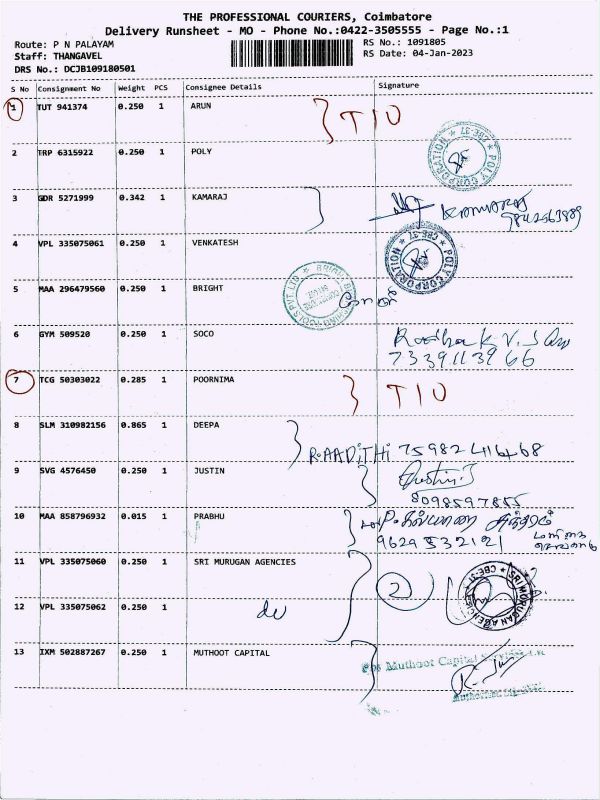 THE PROFESSIONAL COURIERS, Coimbatore
Delivery Runsheet - MO - Phone No.:0422-3505555 - Page No.:1
Route: P N PALAYAM
RS No.: 1091805
Staff: THANGAVEL
RS Date: 04-Jan-2023
DRS No.: DCJB109180501
S No Consignment No Weight PCS Consignee Details Signature
1 TUT 941374 0.250 1 ARUN T10
2 TRP 6315922 0.250 1 POLY
POLY CORPORATION CBE-37
3 GDR 5271999 0.342 1 KAMARAJ
KAMARAJ
4 VPL 335075061 0.250 1 VENKATESH
POLY CORPORATION CBE-37
5 MAA 296479560 0.250 1 BRIGHT
6 GYM 509520 0.250 1 SOCO
7339113966
7 TCG 50303022 0.285 1 POORNIMA T10
8 SLM 310982156 0.865 1 DEEPA
R.AADITHI 7598241468
9 SVG 4576450 0.250 1 JUSTIN
Justin.J
8098597855
10 MAA 858796932 0.015 1 PRABHU
9629532121
11 VPL 335075060 0.250 1 SRI MURUGAN AGENCIES
2
SRI MURUGAN AGENCIES CBE-37
12 VPL 335075062 0.250 1 do
13 IXM 502887267 0.250 1 MUTHOOT CAPITAL
For Muthoot Capital